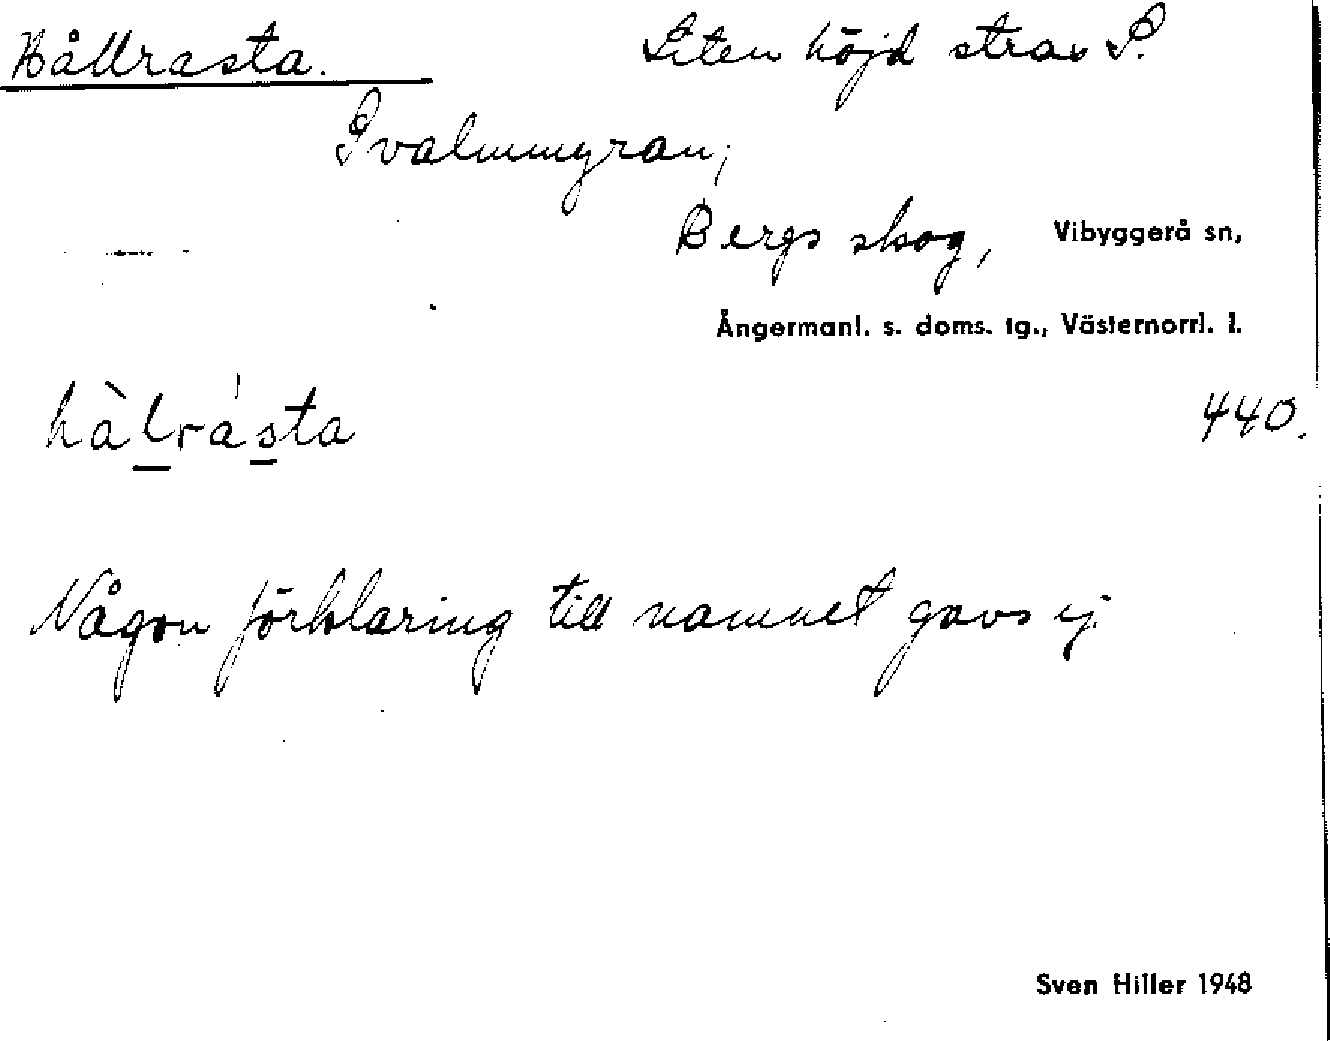 Hållrasta. Liten höjd strax S.
Svalmmyran,
Bergs skog, Vibyggerå sn,
Ångermanl. s. doms. tg., Västernorrl. l.
hàlrása̱ta
440.
Någon förklaring till namnet gavs ej.
Sven Hiller 1948